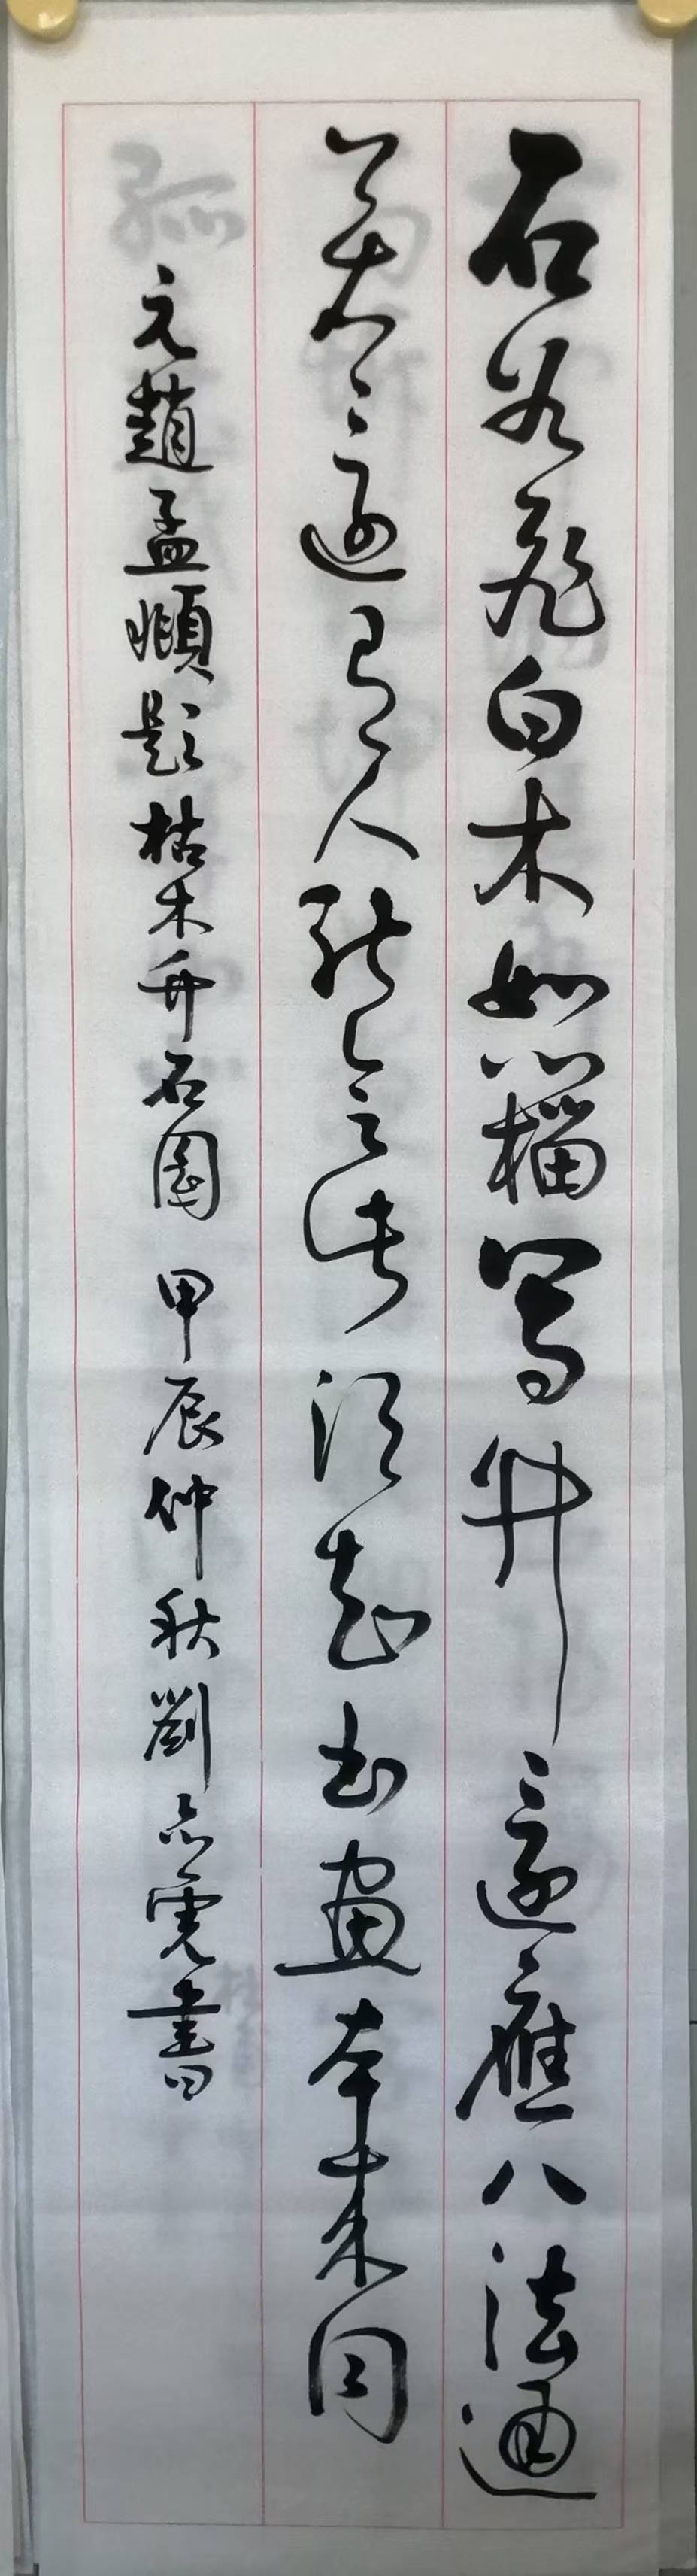 石如飛白木如籀寫竹還應八法通
若還有人能會此須知書畫本來同
元趙孟頫題枯木竹石圖 甲辰仲秋劉亦書